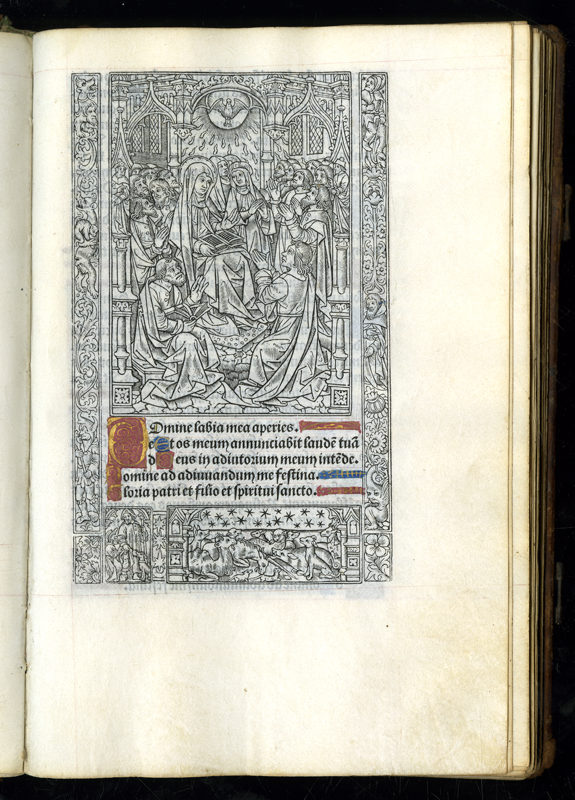 Domine labia mea aperies.
Et os meum annunciabit laudē tuā
deus in adiutorium meum intēde.
Domine ad adiuuandum me festina.
Gloria patri et filio et spiritui sancto.